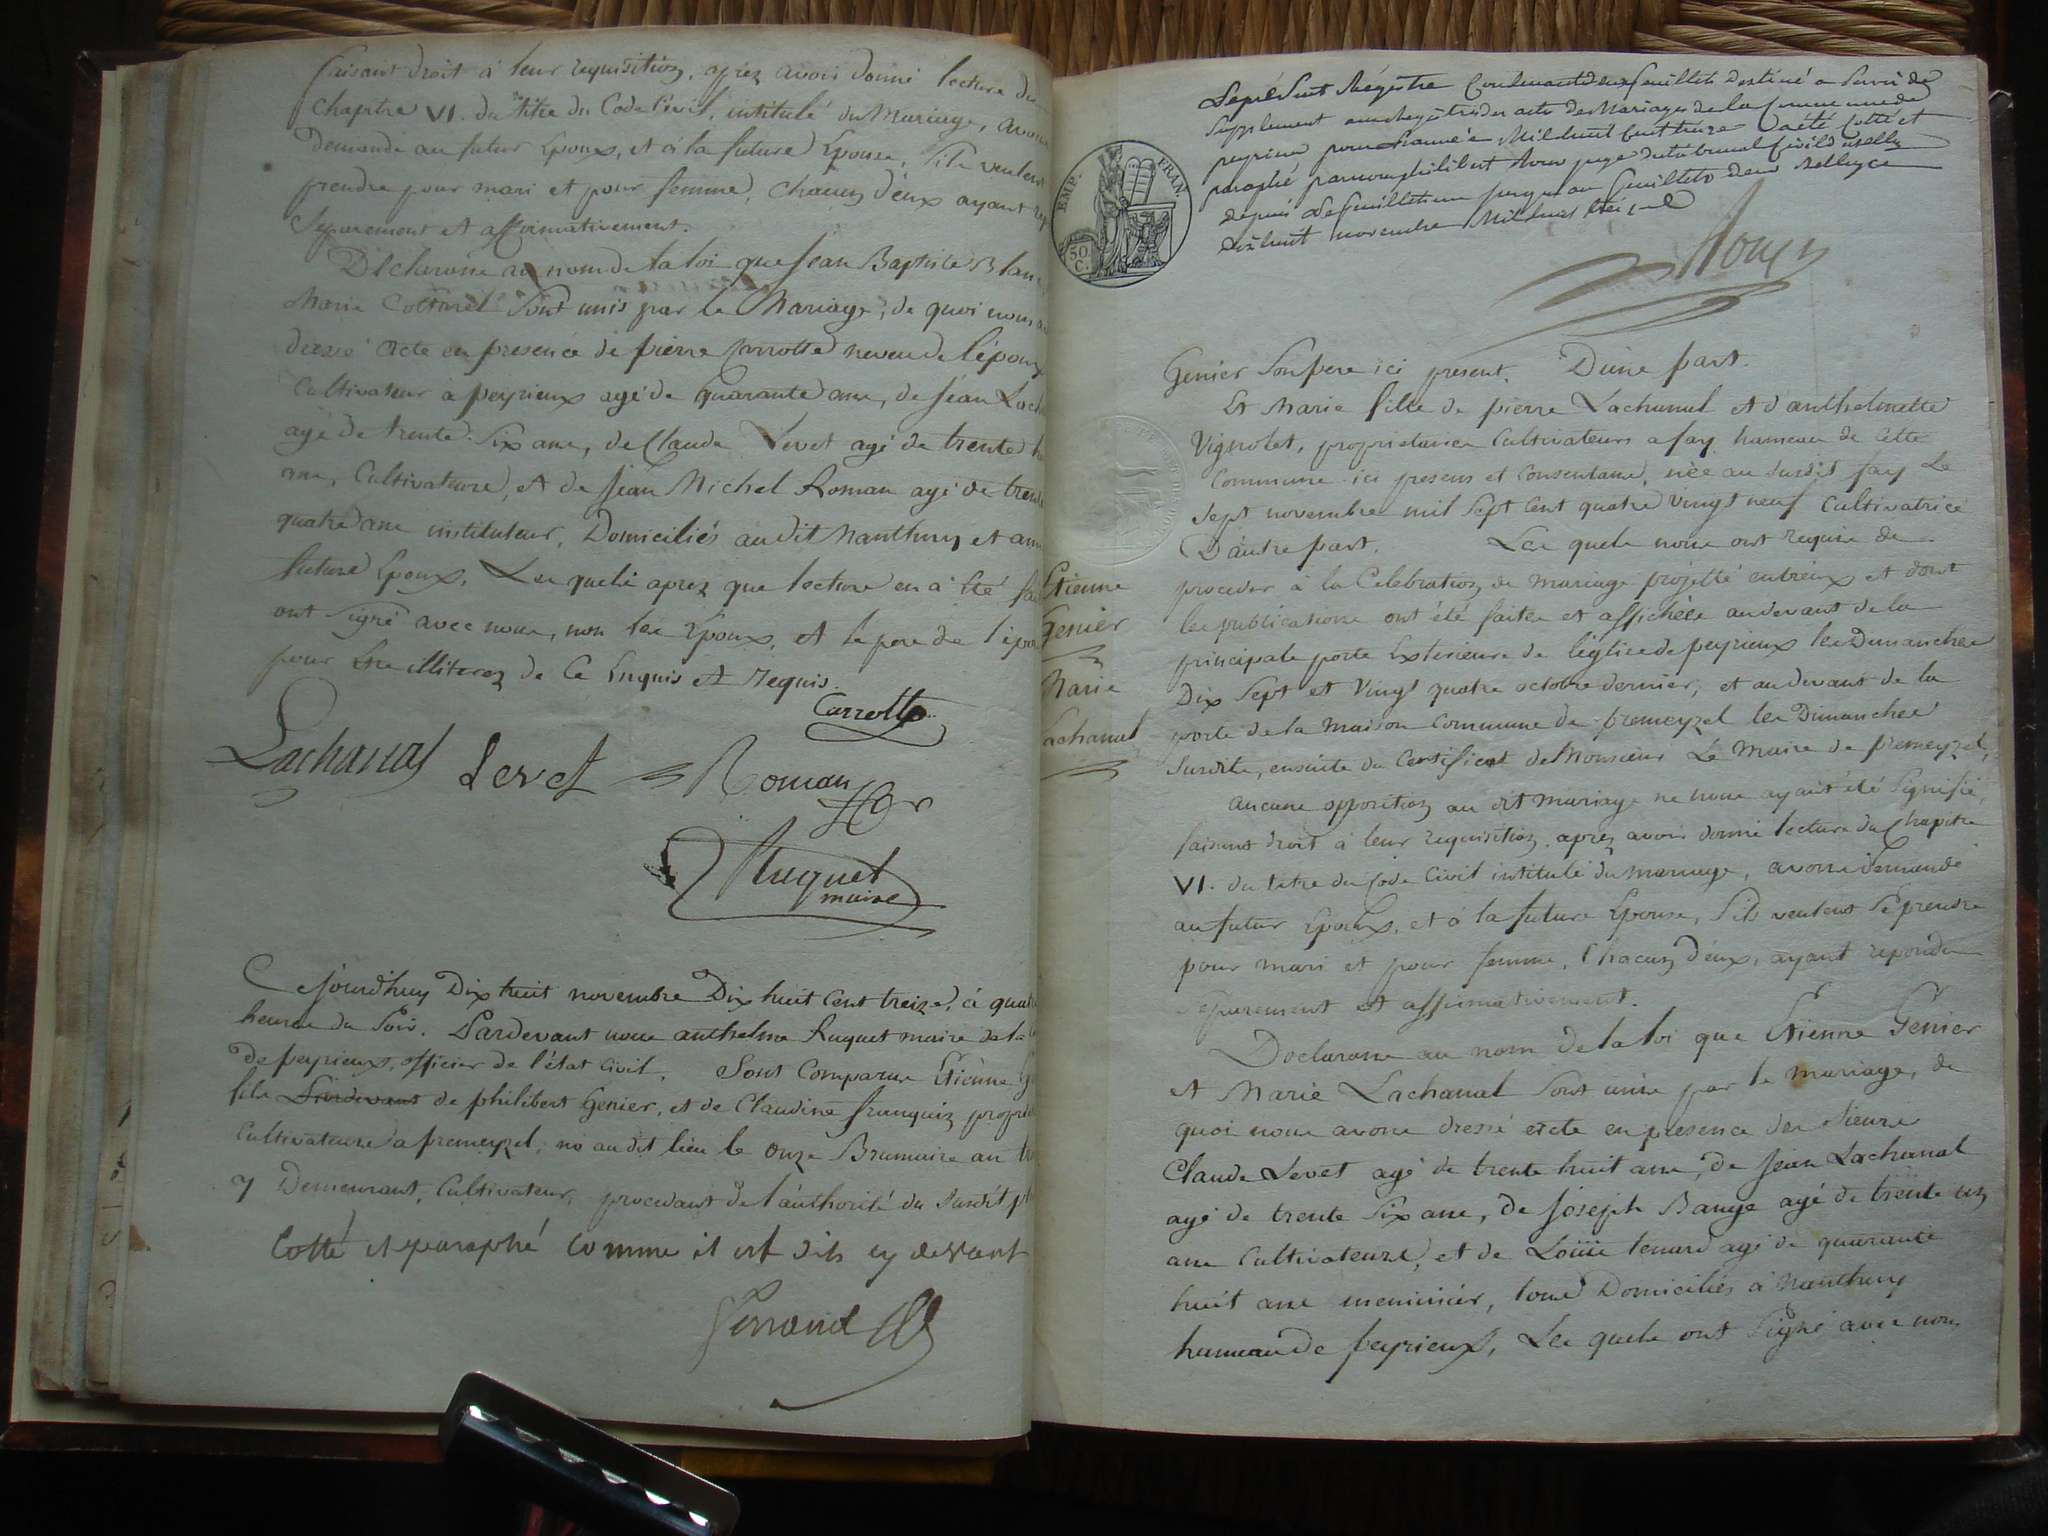 faisant droit à leur requisition, aprez avoir donné lecture du
chapitre VI. du titre du Code Civil, intitulé du Mariage, avons
Demandé au futur Epoux, et a la future Epouse, s'ils veulent
prendre pour mari et pour femme, chacun d'eux ayant rep
Separement et affirmativement.
Déclarons au nom de la loi que Jean Baptiste Blanc
Marie Cottarel Sont unis par le Mariage, de quoi nous a
dressé Acte en presence de pierre Carrotte neveu de l'époux
Cultivateur a peyrieux agé de quarante ans, de Jean Lach
agé de trente Six ans, de Claude Levet agé de trente h
ans, Cultivateurs, et de Jean Michel Roman agé de trente
quatre ans instituteur, Domiciliés audit Nanthuy et
future Epoux, Les quels aprez que lecture en a été fai
ont signé avec nous, non les Epoux, et le pere de l'épou
pour Etre illiterez de Ce Enquis et Requis.
Carrotte
Lachanal Levet Roman
Ruquet
maire
Cejourd'huy Dix huit novembre Dix huit Cent treize, à quatre
heures du Soir. Pardevant nous anthelme Ruquet maire de la
de peyrieux, officier de l'état Civil, Sont Comparus Etienne G
fils Pardevant de philibert Genier, et de Claudine françuis, propri
Cultivateurs a premeyzel, né audit lieu le onze Brumaire an
y Demeurant, Cultivateur, procedant de l'authorité du Susdit
Cotté et paraphé Comme il est dit cy devant
EMP. FRAN.
50 C.
Le présent Régistre Contenant deux feuillets destiné a Servir de
Supplement aux Régistres des actes de Mariages de la Commune de
peyrieux pour L'année Mil huit Cent treize a été Cotté et
paraphé par nous philibert juge du tribunal Civil de Belley
depuis Le feuillet un jusques au feuillet deux a Belley ce
dix huit novembre Mil huit Cent treize
Genier Son pere ici present, D'une part.
Et Marie fille de pierre Lachanal et d'anthelmette
Vignolet, proprietaires Cultivateurs a fay hameau de Cette
Commune ici presens et Consentans, née au susdit fay Le
Sept novembre mil Sept Cent quatre Vingt neuf Cultivatrice
D'autre part. Les quels nous ont requis de
proceder à la Celebration de mariage projetté entreux et dont
les publications ont été faites et affichées audevant de la
principale porte Exterieure de l'église de peyrieux les Dimanches
Dix Sept et Vingt quatre octobre dernier, et audevant de la
porte de la Maison Commune de premeyzel les Dimanches
Susdits, ensuite du Certificat de Monsieur Le Maire de premeyzel,
Etienne
Genier
Marie
Lachanal
Aucune opposition au dit mariage ne nous ayant été Signifié,
faisant droit à leur requisition, aprez avoir donné lecture du Chapitre
VI. du titre du Code Civil intitulé du mariage, avons demandé
au futur Epoux, et à la future Epouse, S'ils veulent Se prendre
pour mari et pour femme, Chacun d'eux, ayant repondu
Separement et affirmativement.
Déclarons au nom de la loi que Etienne Genier
et Marie Lachanal Sont unis par le mariage, de
quoi nous avons dressé acte en presence des Sieurs
Claude Levet agé de trente huit ans, de Jean Lachanal
agé de trente Six ans, de Joseph Bauge agé de trente un
ans Cultivateurs, et de Loüis tenard agé de quarante
huit ans menuisier, tous Domiciliés à Nanthuy
hameau de peyrieux, Les quels ont Signé avec nous